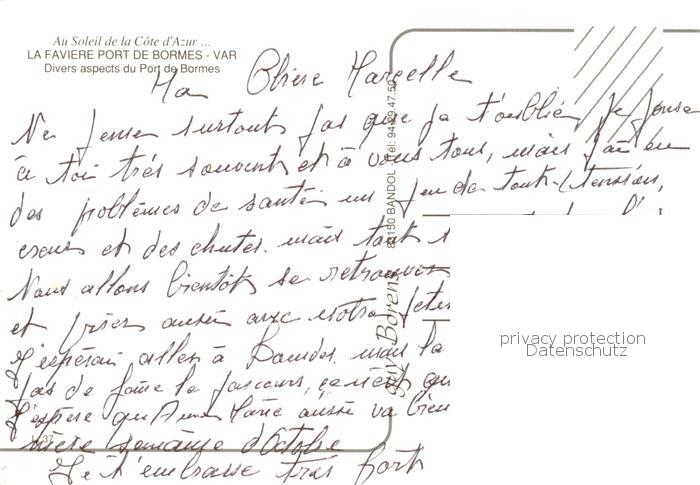 Au Soleil de la Côte d'Azur ...
LA FAVIERE PORT DE BORMES - VAR
Divers aspects du Port de Bormes
Ma Chère Marcelle
Ne pense surtout pas que je t'oublie, je pense
à toi très souvent et à vous tous, mais j'ai eu
des problèmes de santé un peu de tout (tension,
et des chutes. mais tout
Nous allons bientôt se retrouver
et aussi avec notre
J'espérais aller à mais la
pas de faire le parcours, ce n'est
J'espère qu'Anne Marie aussi va bien
semaine d'Octobre
Je t'embrasse très fort
83150 BANDOL
privacy protection
Datenschutz
37